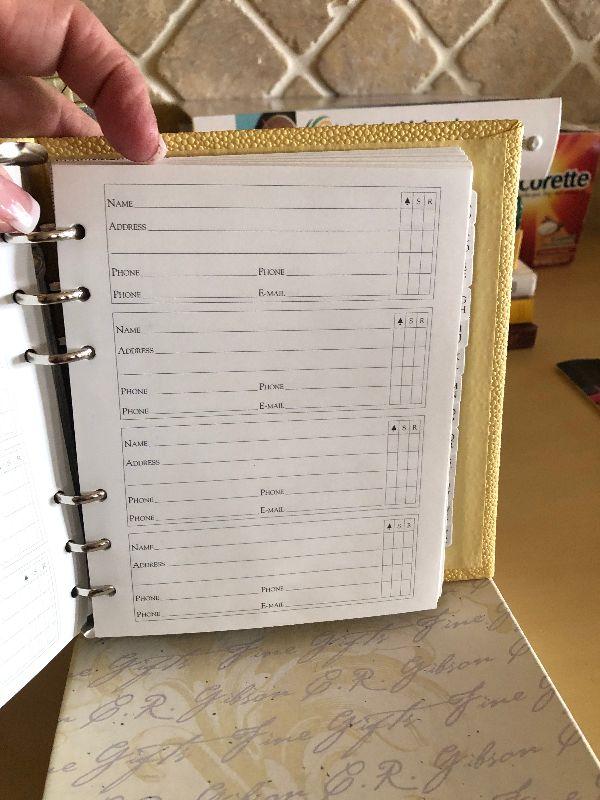 S R
NAME
ADDRESS
PHONE PHONE
PHONE E-MAIL
S R
NAME
ADDRESS
PHONE PHONE
PHONE E-MAIL
S R
NAME
ADDRESS
PHONE PHONE
PHONE E-MAIL
S R
NAME
ADDRESS
PHONE PHONE
PHONE E-MAIL
S R
H
Fine Gifts Fine
Fine Gifts E.R. Gibson
E.R. Gibson E.R. Gibson E.
Fine Gifts Fine Gifts Fine
E.R. Gibson